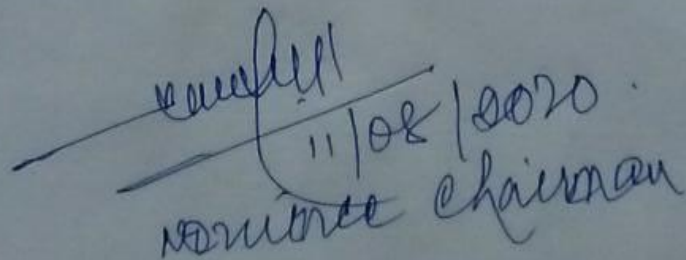 11/08/2020.
Nominee Chairman